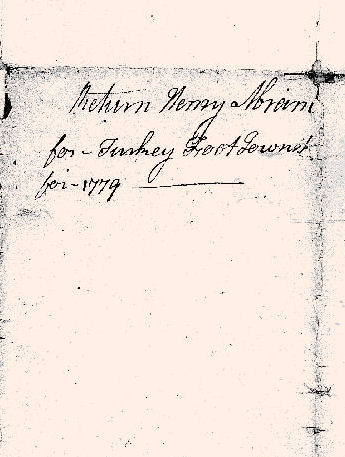 Return Henry Abram
for – Turkey Foot Townsh
for – 1779 ———